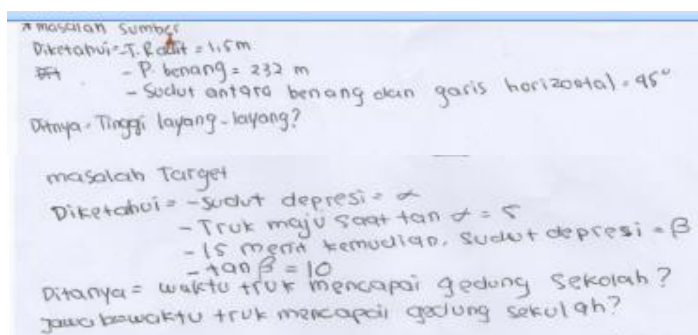 * masalah sumber
Diketahui = T. Radit = 1,5 m
- P. benang = 232 m
- Sudut antara benang dan garis horizontal = 45°
Ditnya = Tinggi layang-layang?
masalah Target
Diketahui = - Sudut depresi = α
- Truk maju saat tan α = 5
- 15 menit kemudian, sudut depresi = β
- tan β = 10
Ditanya = waktu truk mencapai gedung sekolah?